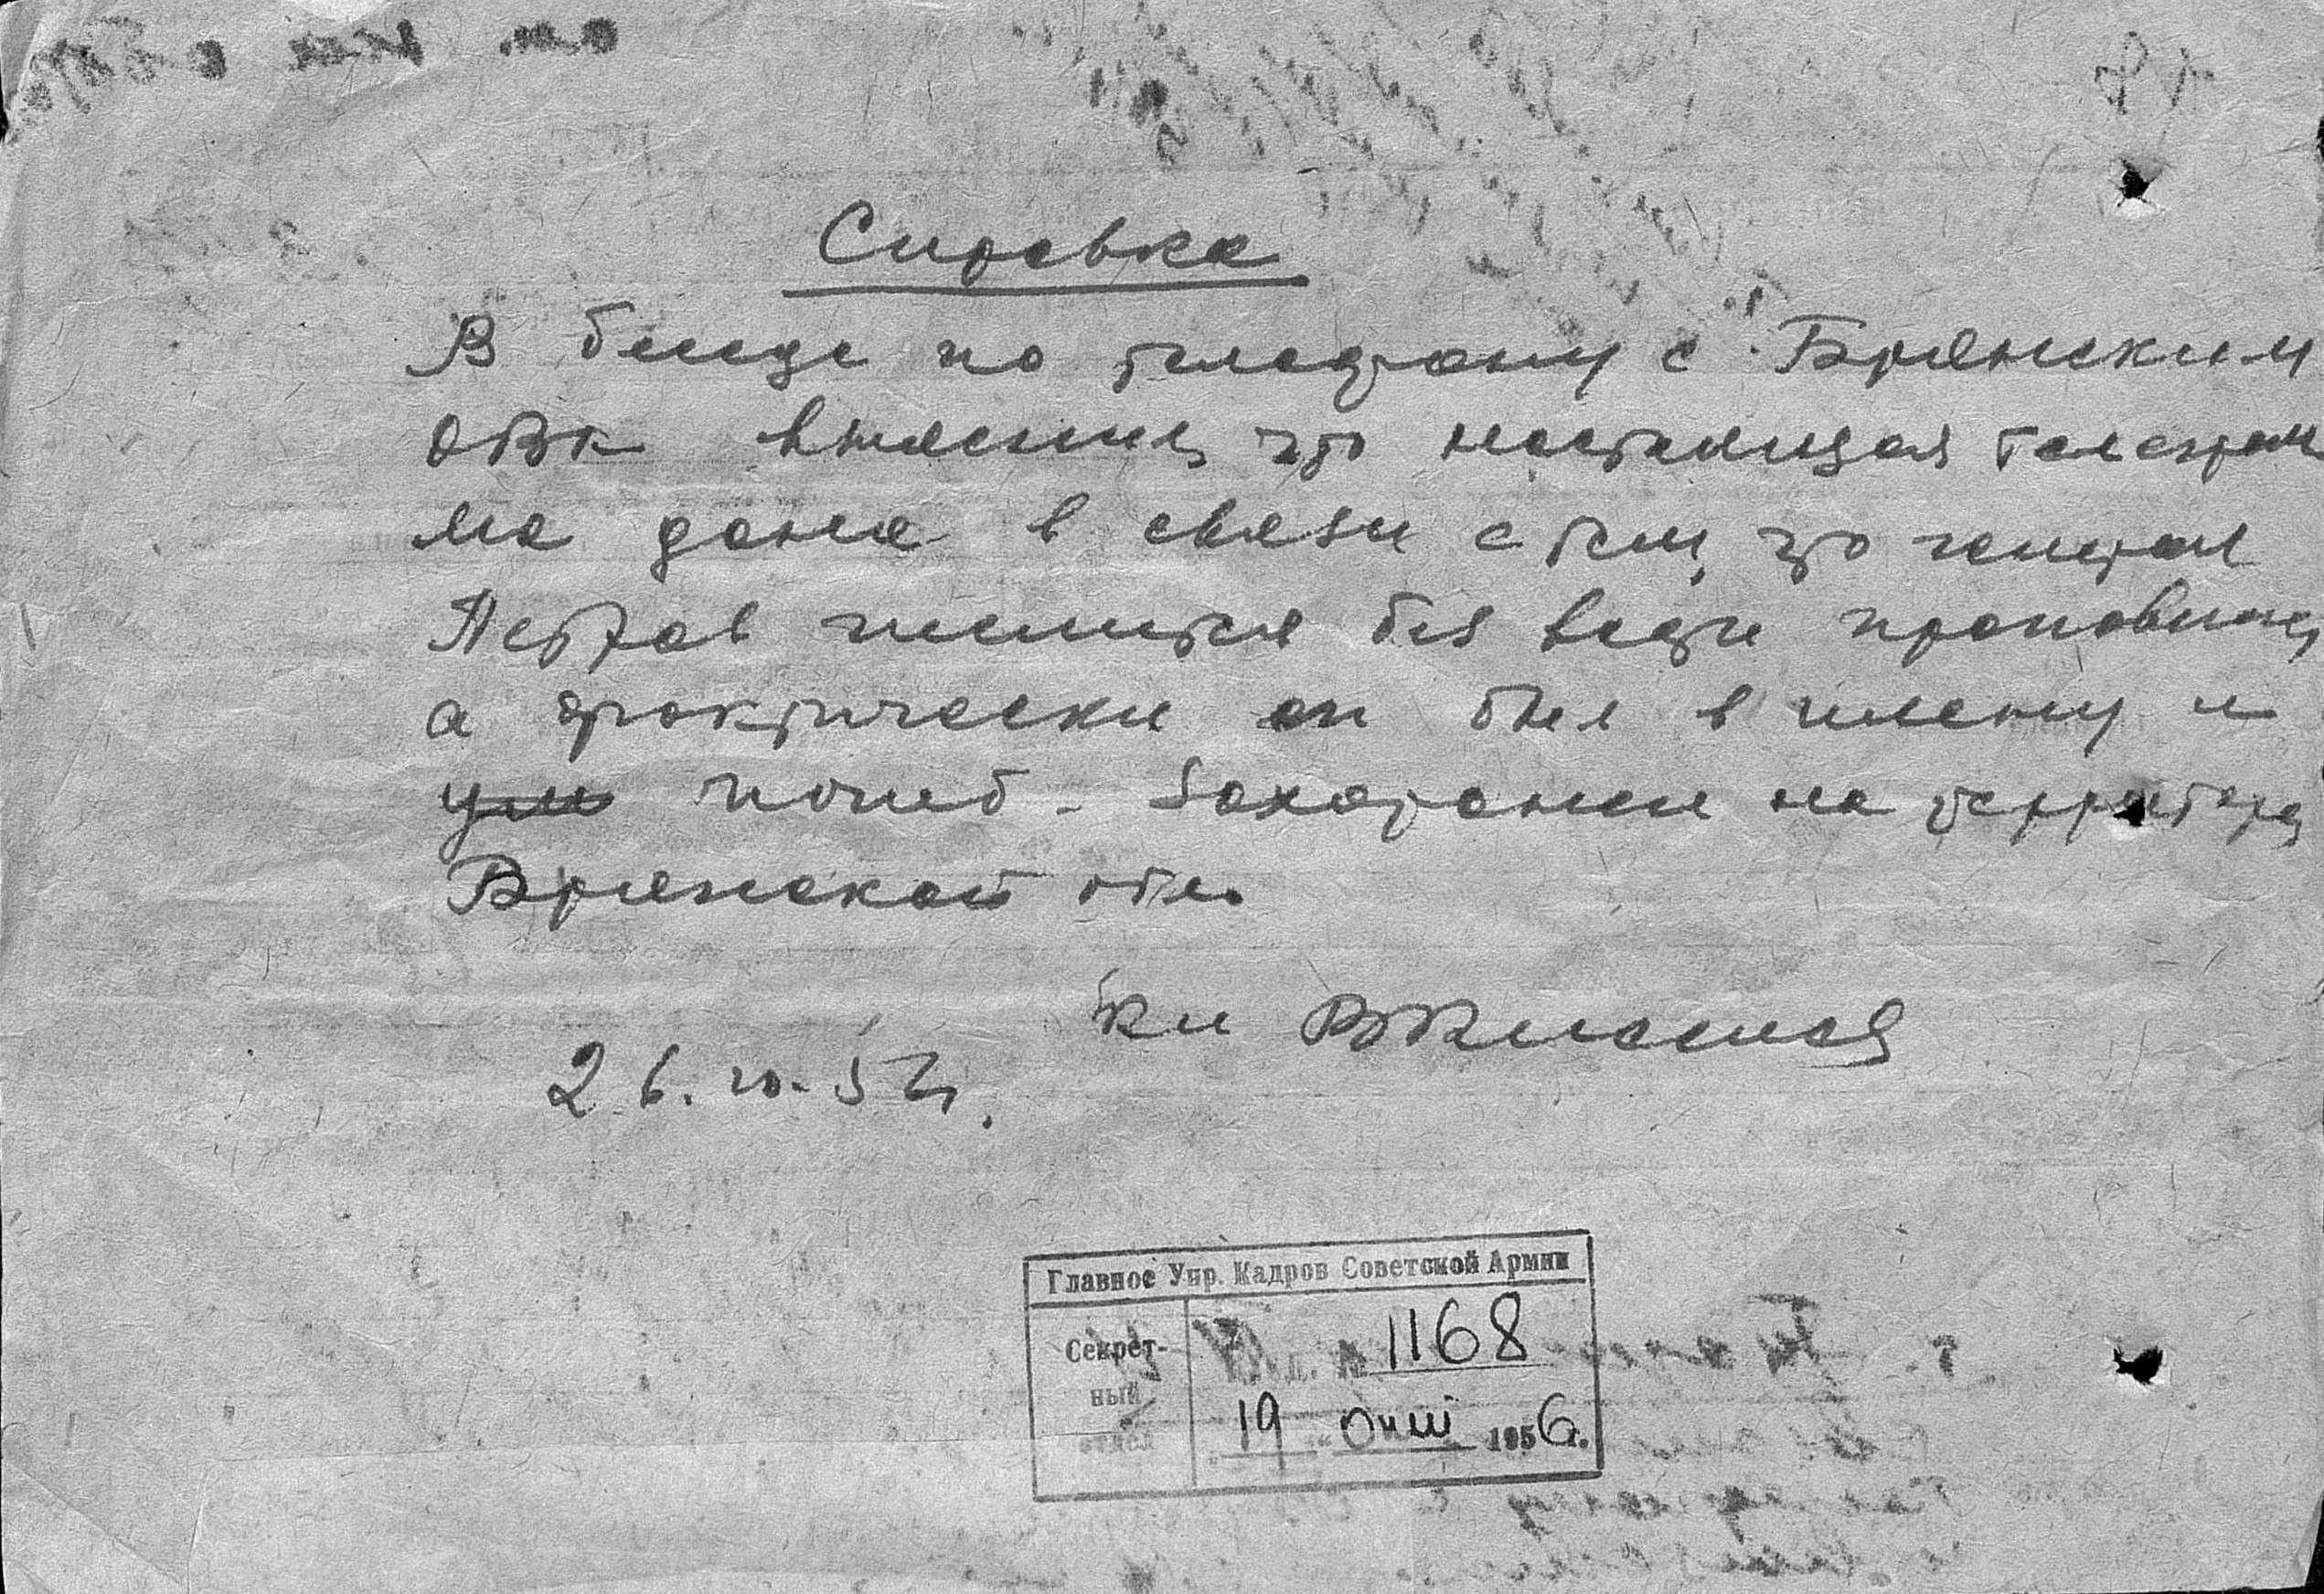 Справка
В беседе по телефону с Брянским
ОВК выяснил, что настоящая телеграм
ма дана в связи с тем, что генерал
Петров числится без вести пропавшим,
а фактически он был в плену и
ум погиб. Захоронен на территории
Брянской обл.
26.10.54.
Главное Упр. Кадров Советской Армии
Секрет-
ный
отдел
1168
19 1956г.